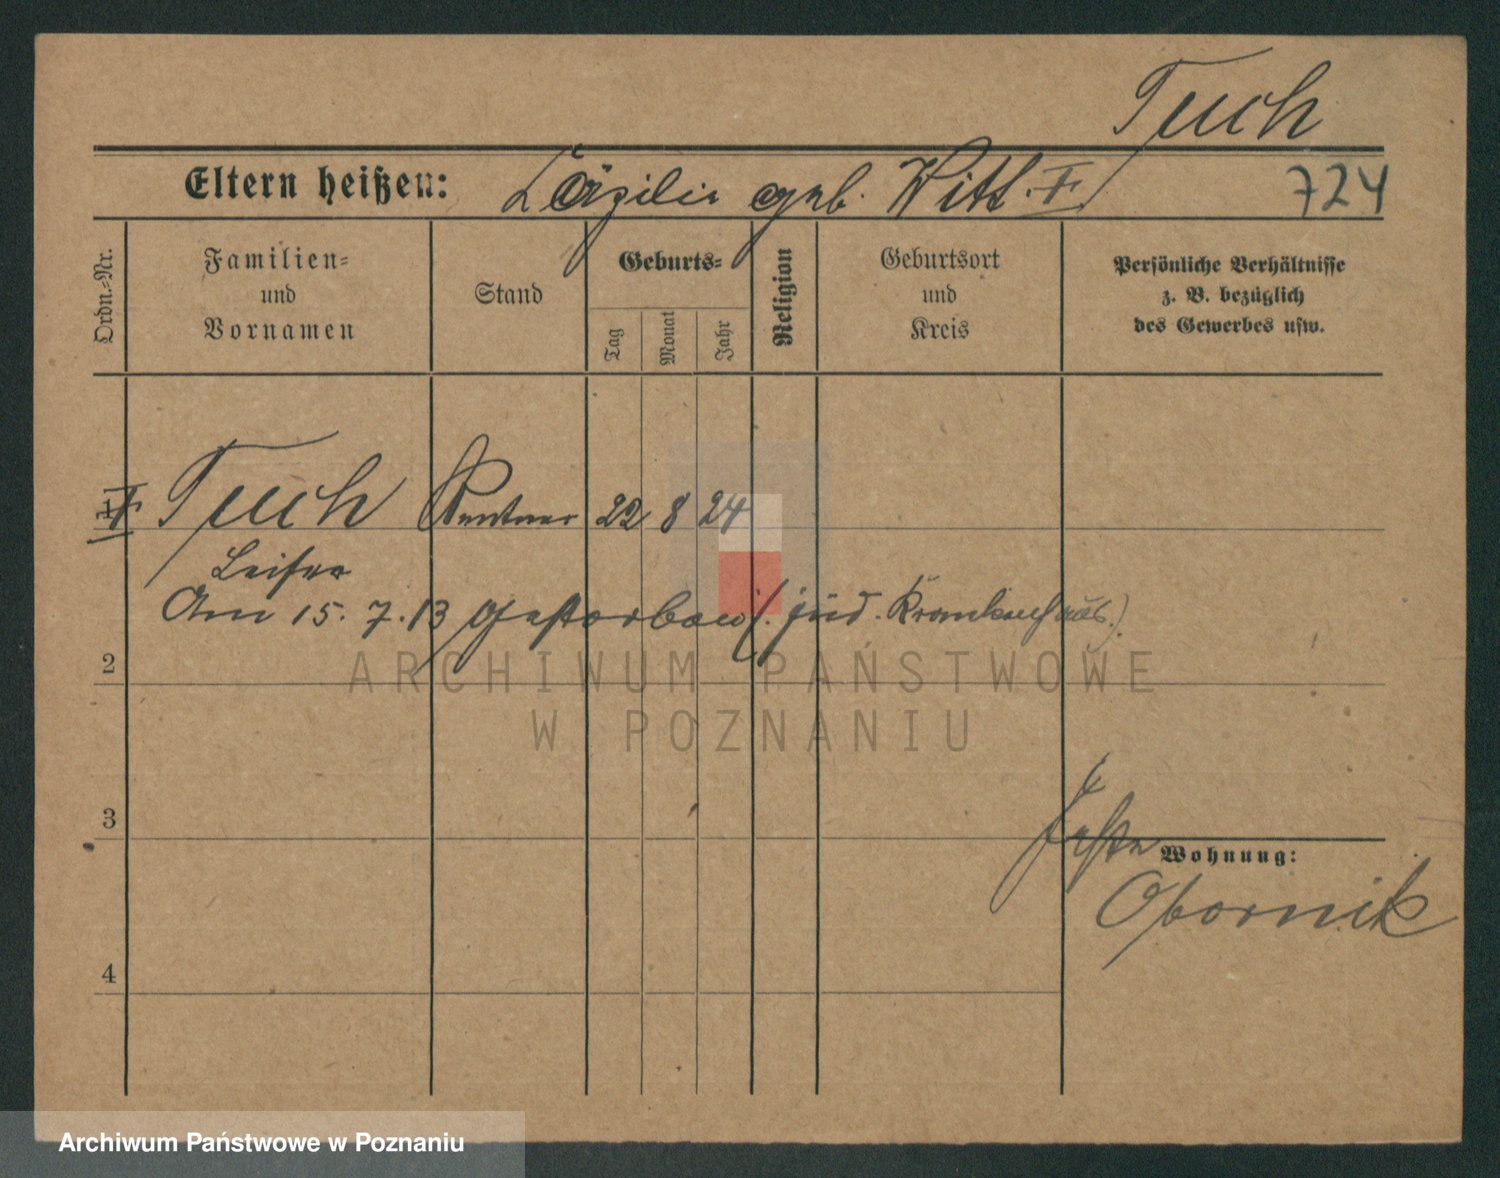 Tuch
Eltern heißen: Cäzilie geb. Witt. †
724
Ordn.-Nr.
Familien-
und
Vornamen
Stand
Geburts-
Tag
Monat
Jahr
Religion
Geburtsort
und
Kreis
Persönliche Verhältnisse
z. B. bezüglich
des Gewerbes usw.
1 † Tuch Rentner 22 8 24
Leiser
Am 15. 7. 13 gestorben (. jüd. Krankenhaus.)
2
ARCHIWUM PAŃSTWOWE
W POZNANIU
3
Wohnung:
Obornik
4
Archiwum Państwowe w Poznaniu